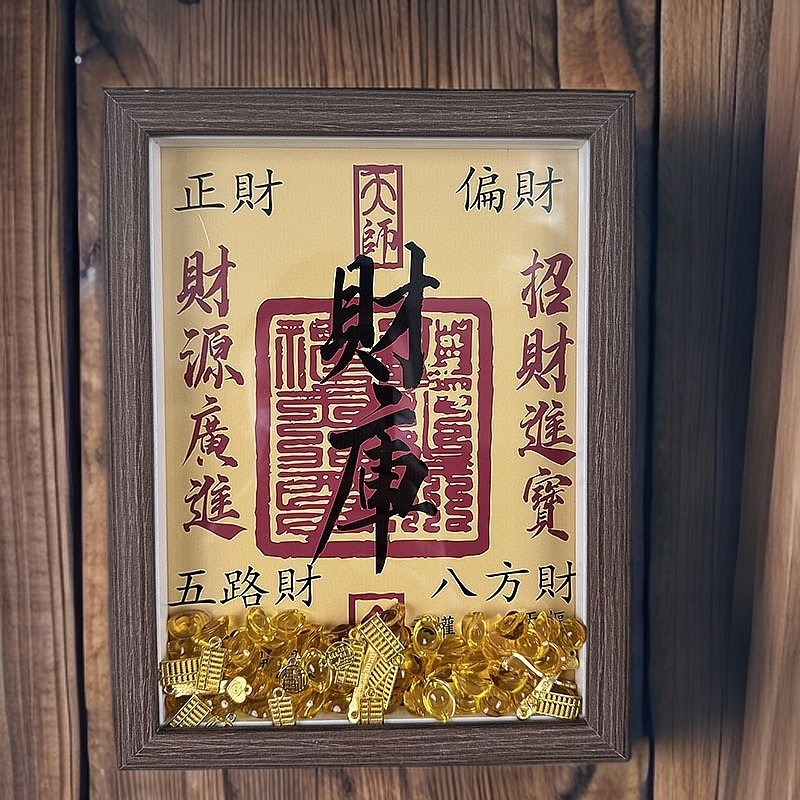 正財
偏財
天師
財庫
招財進寶
財源廣進
五路財
八方財
權